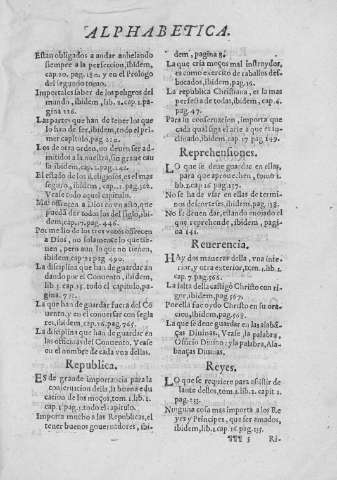 ALPHABETICA.
Estan obligados a andar anhelando
siempre a la perfeccion, ibidem,
cap.20. pag. 180. y en el Prologo
del segundo tomo.
Importales saber de los peligros del
mundo, ibidem, lib. 2. cap. 1. pa-
gina 226.
Las partes que han de tener los que
lo han de ser, ibidem, todo el pri-
mer capitulo, pag. 220.
Los de otra orden, no deuen ser ad-
mitidos a la nuestra, sin graue cau
sa ibidem, cap. 1. pag. 142.
El estado de los religiosos, es el mas
seguro, ibidem, cap. pag.
Vease todo aquel capitulo.
Mas ofrecen a Dios en vn acto, que
pueda dar todos los del siglo, ibi-
dem, cap. 17. pag. 446.
Por medio de los tres votos ofrecen
a Dios, no solamente lo que tie-
nen, pero aun lo que no tienen
ibidem, cap. pag. 490.
La disciplina que han de guardar an
dando por el Conuento, ibidem,
lib. cap. 15. todo el capitulo, pa-
gina, 751.
La que han de guardar fuera del Co
uento, y en el conuersar con segla
res, ibidem, cap. 16. pag. 765.
La disciplina que han de guardar en
las oficinas del Conuento. Vease
en el nombre de cada vna dellas.
Republica.
ES de grande importancia para la
conseruacion della, la buena edu
cacion de los moços, tom. 1. lib. 1.
cap. 1. pag. 1. todo el capitulo.
Importa mucho a las Republicas, el
tener buenos gouernadores, ibi-
dem, pagina 8.
La que cria moços mal instruydos,
es como exercito de caballos des-
bocados, ibidem, pag.
La republica Christiana, es la mas
perfeta de todas, ibidem, cap. 6.
pag. 47.
Para su conseruacion, importa que
cada qual siga el arte a que es in-
clinado, ibidem, cap. 17. pag. 199.
Reprehensiones.
LO que se deue guardar en ellas,
para que aprouechen, tomo 1.
lib. 1. cap. 16. pag. 137.
No se ha de vsar en ellas de termi-
nos descorteses, ibidem, pag. 138.
No se deuen dar, estando enojado el
que reprehende, ibidem, pagi-
na 141.
Reuerencia.
HAy dos maneras della, vna inte-
rior, y otra exterior, tom. 1. lib. 1.
cap. 7. pag. 566.
La falta della castigò Christo con ri-
gor, ibidem, pag. 567.
Por ella fue oydo Christo en su ora-
cion, ibidem, pag. 568.
La que se deue guardar en las alaba-
ças Diuinas, Vease, la palabra,
Officio Diuino: y la palabra, Ala-
banças Diuinas.
Reyes.
LO que se requiere para assistir de-
lante dellos, tom. 1. lib. 1. capit. 1.
pag. 233.
Ninguna cosa mas importa a los Re
yes y Principes, que ser amados,
ibidem, lib. 1. cap. 16. pag. 135.
TTT 3 Ri-